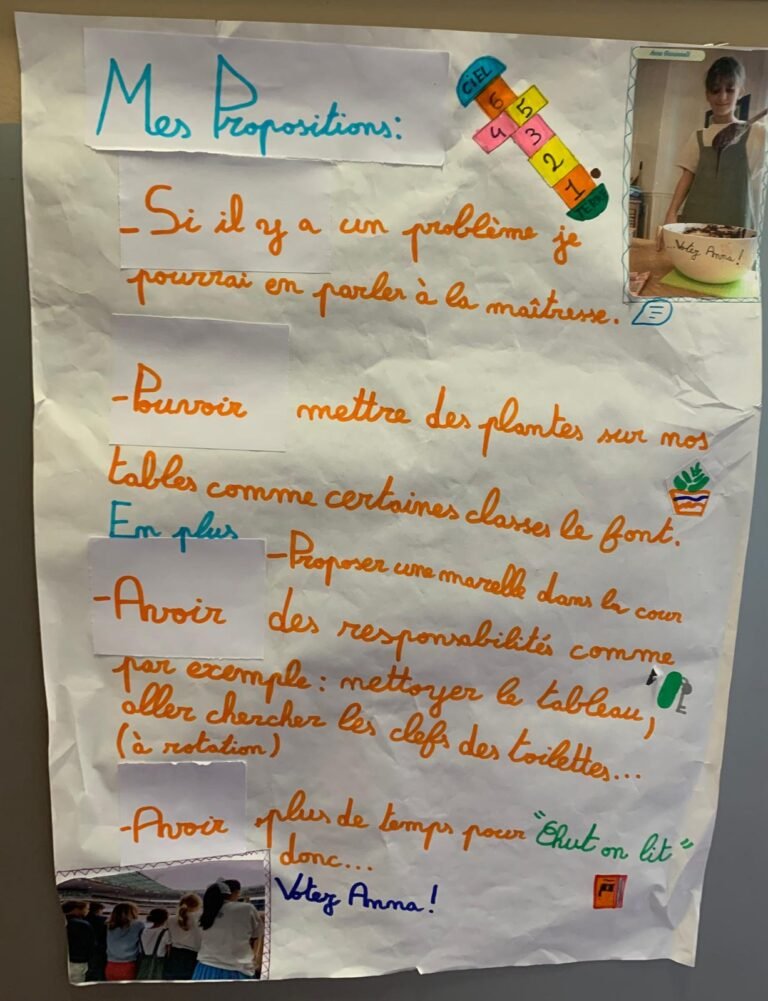 Mes Propositions:
CIEL
6
5
4
3
2
1
TERRE
...Votez Anna!
-Si il y a un problème je
pourrai en parler à la maîtresse.
-Pouvoir mettre des plantes sur nos
tables comme certaines classes le font.
En plus
-Proposer une marelle dans la cour
-Avoir des responsabilités comme
par exemple: nettoyer le tableau,
aller chercher les clefs des toilettes...
(à rotation)
-Avoir plus de temps pour "Chut on lit"
donc...
Votez Anna!